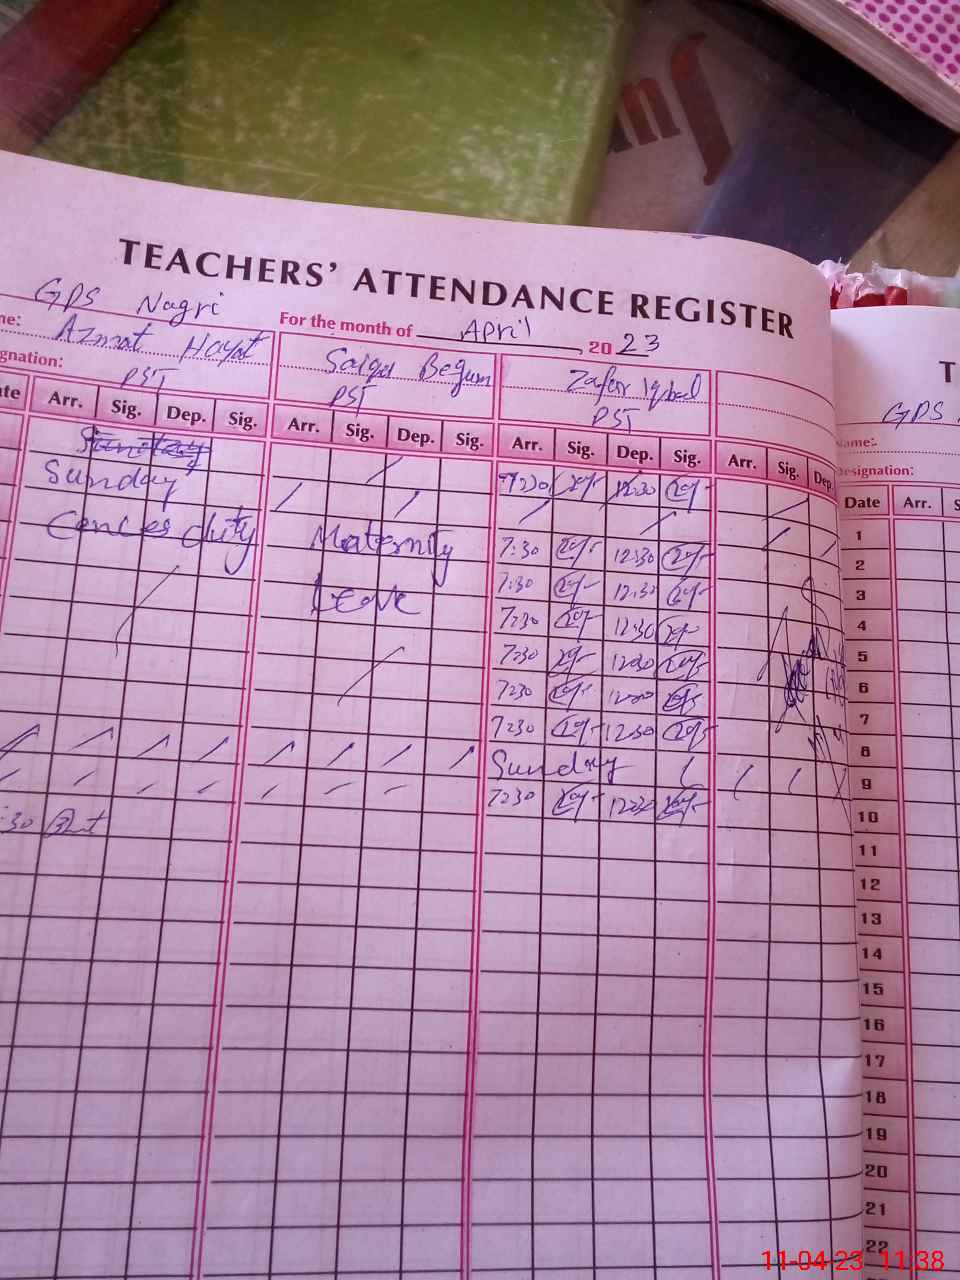 TEACHERS' ATTENDANCE REGISTER
GPS Nagri
For the month of April, 2023
me: Azmat Hayat
Saiqa Begum
Zafar Iqbal
gnation: PST
PST
PST
te Arr. Sig. Dep. Sig. Arr. Sig. Dep. Sig. Arr. Sig. Dep. Sig. Arr. Sig. Dep.
Sunday
7:30 12:30
Sunday
Cences duty Maternity 7:30 12:30
Leave 7:30 12:30
7:30 12:30
7:30 12:30
7:30 12:30
7:30 12:30
Sunday
7:30 12:30
:30
T
GPS
Name:
Designation:
Date Arr. S
1
2
3
4
5
6
7
8
9
10
11
12
13
14
15
16
17
18
19
20
21
22
11-04-23 11:38